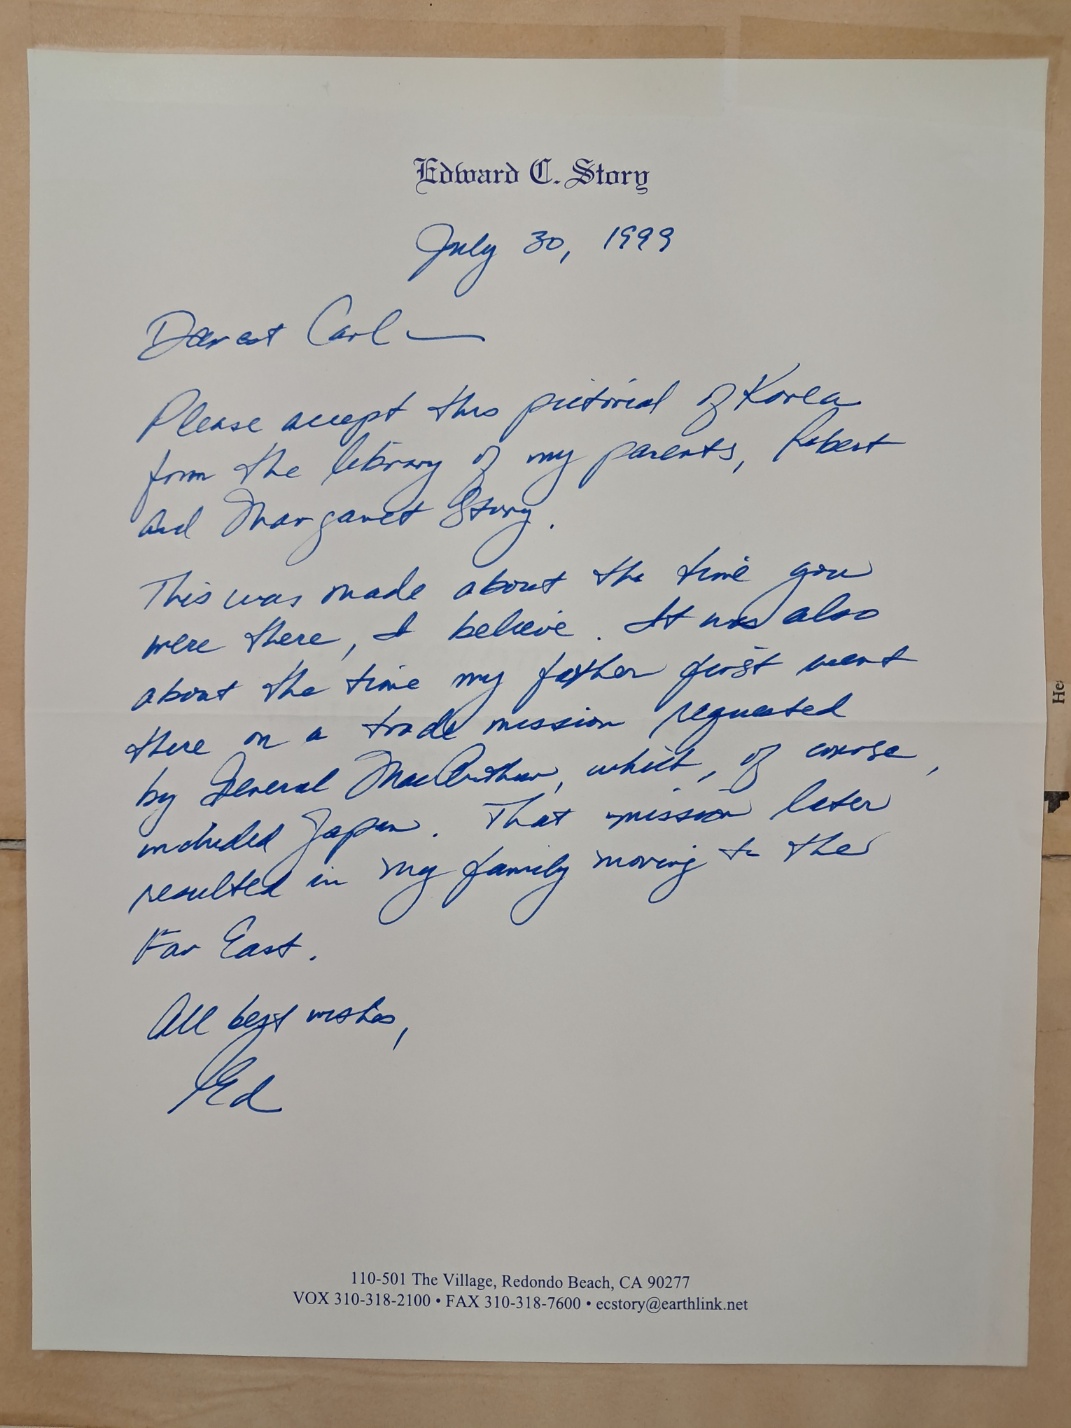 Edward C. Story
July 30, 1999
Dearest Carl —
Please accept this pictorial of Korea
from the library of my parents, Robert
and Margaret Story.
This was made about the time you
were there, I believe. It was also
about the time my father first went
there on a trade mission requested
by General MacArthur, which, of course,
included Japan. That mission later
resulted in my family moving to the
Far East.
All best wishes,
Ed
110-501 The Village, Redondo Beach, CA 90277
VOX 310-318-2100 • FAX 310-318-7600 • ecstory@earthlink.net
He